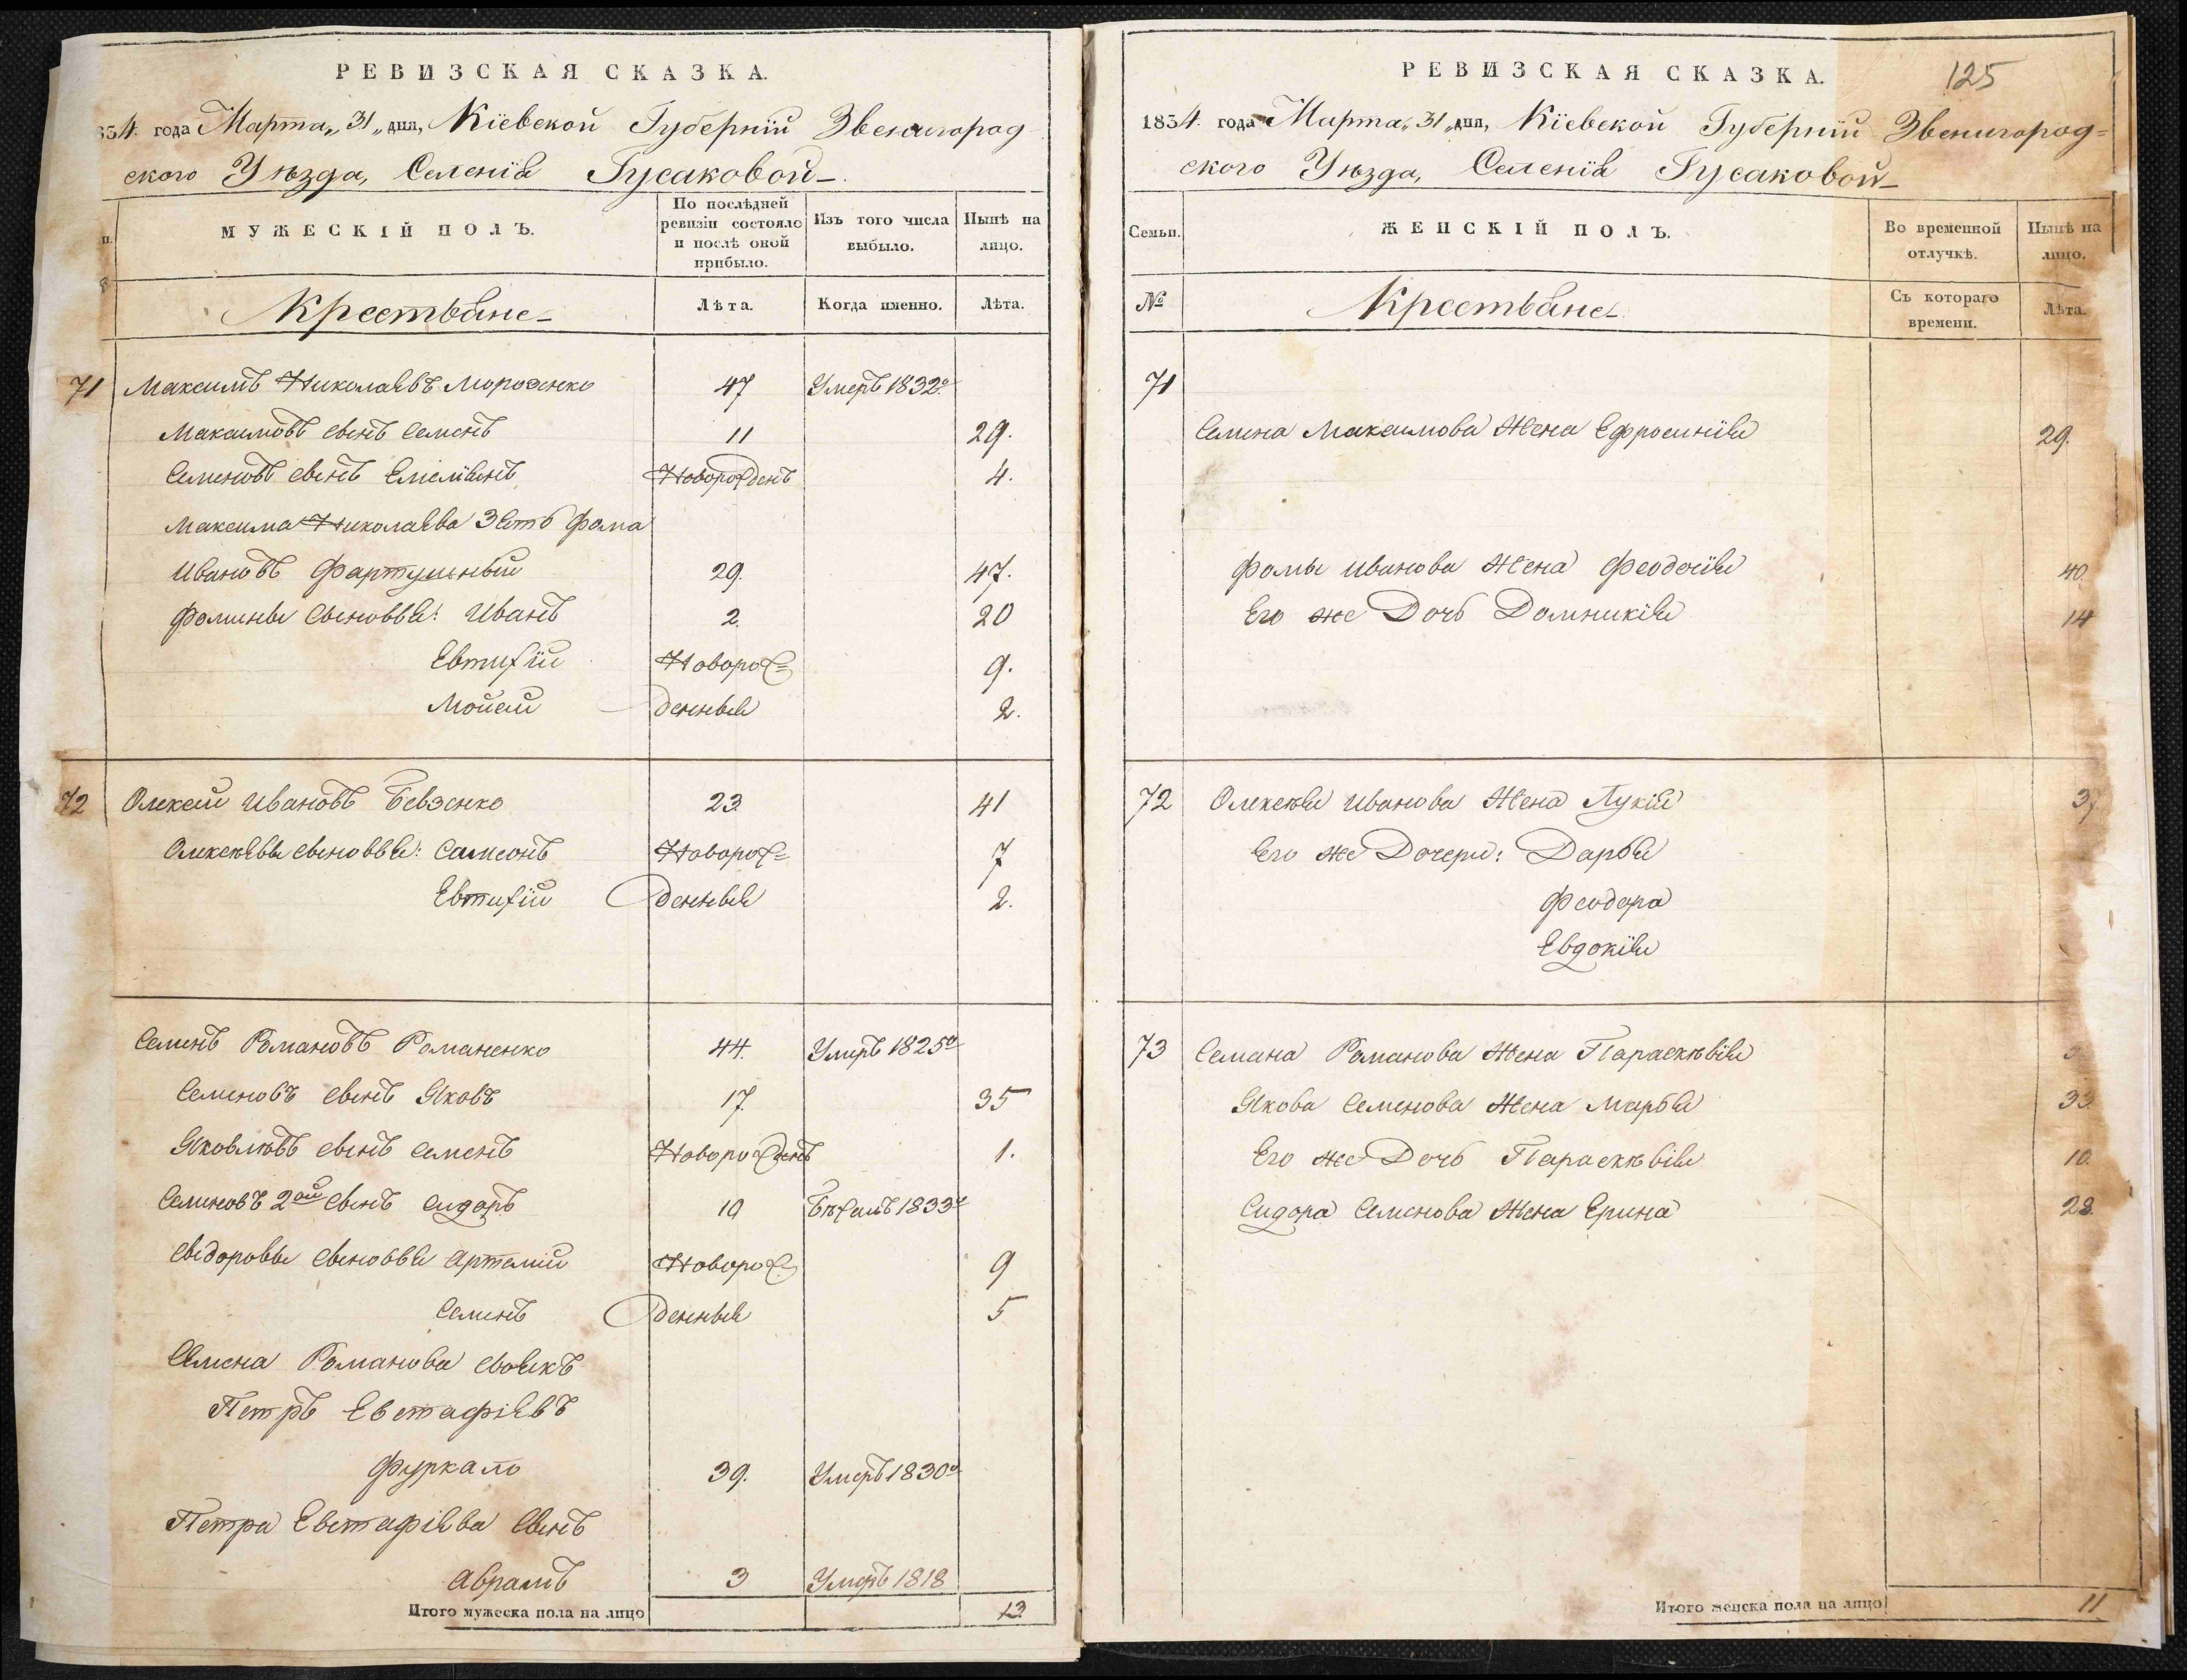 РЕВИЗСКАЯ СКАЗКА.
834. года Марта „31„ дня, Кіевской Губерніи Звенигород
ского Уѣзда, Селенія Гусаковой
МУЖЕСКІЙ ПОЛЪ.
По послѣдней ревизіи состояло и послѣ оной прибыло.
Изъ того числа выбыло.
Нынѣ на лицо.
Крестьяне
Лѣта.
Когда именно.
Лѣта.
71 Максимъ Николаевъ Мороженко 47 Умеръ 1832го
Максимовъ сынъ Семенъ 11 29.
Семеновъ сынъ Емелиянъ Новорожденъ 4.
Максима Николаева Зять Фома
Ивановъ Фартушный 29. 47.
Фомины сыновья: Иванъ 2. 20
Евтихій Новорож= 9.
Мойсій денныя 2.
72 Олексѣй Ивановъ Бевзенко 23. 41
Олексѣевы сыновья: Самсонъ Новорож= 7
Евтихій денныя 2.
Семенъ Романовъ Романенко 44. Умеръ 1825го
Семеновъ сынъ Яковъ 17. 35
Яковлевъ сынъ Семенъ Новорожденъ 1.
Семеновъ 2ой сынъ Сидоръ 10 Бѣжалъ 1833го
Сыдоровы сыновья Артемій Новорож= 9
Семенъ денныя 5
Семена Романова своякъ
Петръ Евстафіевъ
Фуркало 39. Умеръ 1830го
Петра Евстафіева Сынъ
Аврамъ 3 Умеръ 1818
Итого мужеска пола на лицо 13
РЕВИЗСКАЯ СКАЗКА. 125
1834. года Марта „31„ дня, Кіевской Губерніи Звенигород=
ского Уѣзда, Селенія Гусаковой
Семьи.
ЖЕНСКІЙ ПОЛЪ.
Во временной отлучкѣ.
Нынѣ на лицо.
№
Крестьяне
Съ котораго времени.
Лѣта.
71
Семена Максимова Жена Ефросинія 29.
Фомы Иванова Жена Феодосія 40.
Его же Дочь Домникія 14
72 Олексѣя Иванова Жена Лукія 37
Его же Дочери: Дарья
Феодора
Евдокія
73 Семена Романова Жена Параскѣвія
Якова Семенова Жена Марья 33.
Его же Дочь Параскѣвія 10.
Сидора Семенова Жена Ерина 28.
Итого женска пола на лицо 11